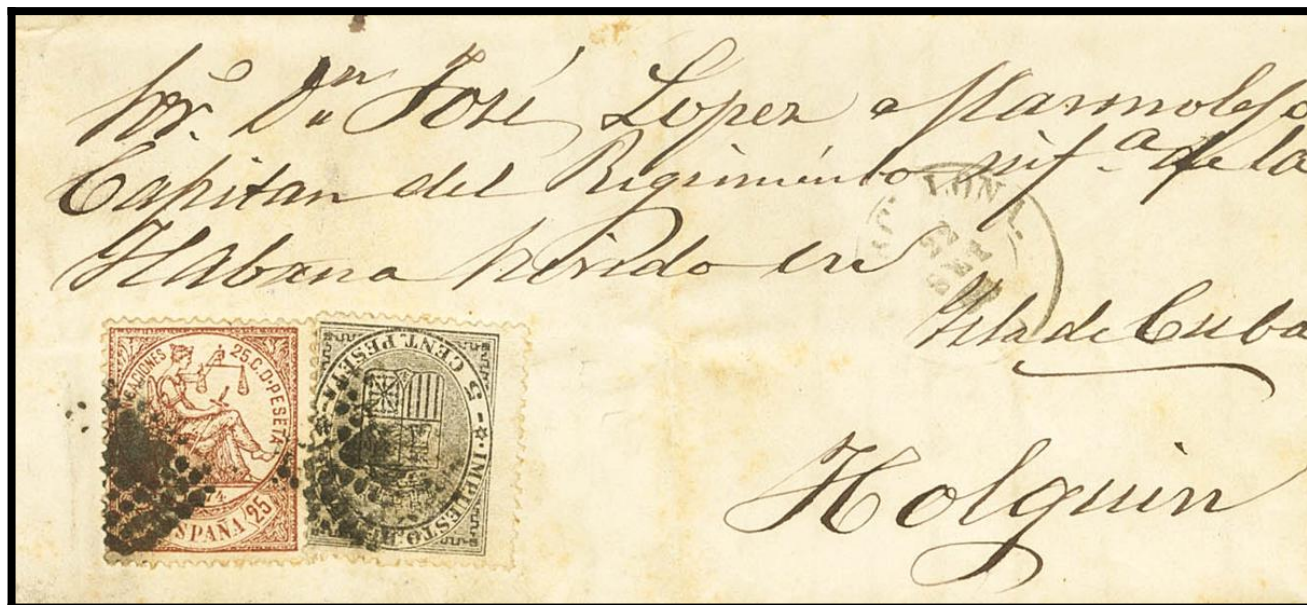 Sor. Dn José Lopez Marmolejo
Capitan del Regimiento inf.a de la
Habana herido en
Isla de Cuba
Holguin
25 C. D. PESETA
ESPAÑA 25
5 CENT. PESETA
IMPUESTO